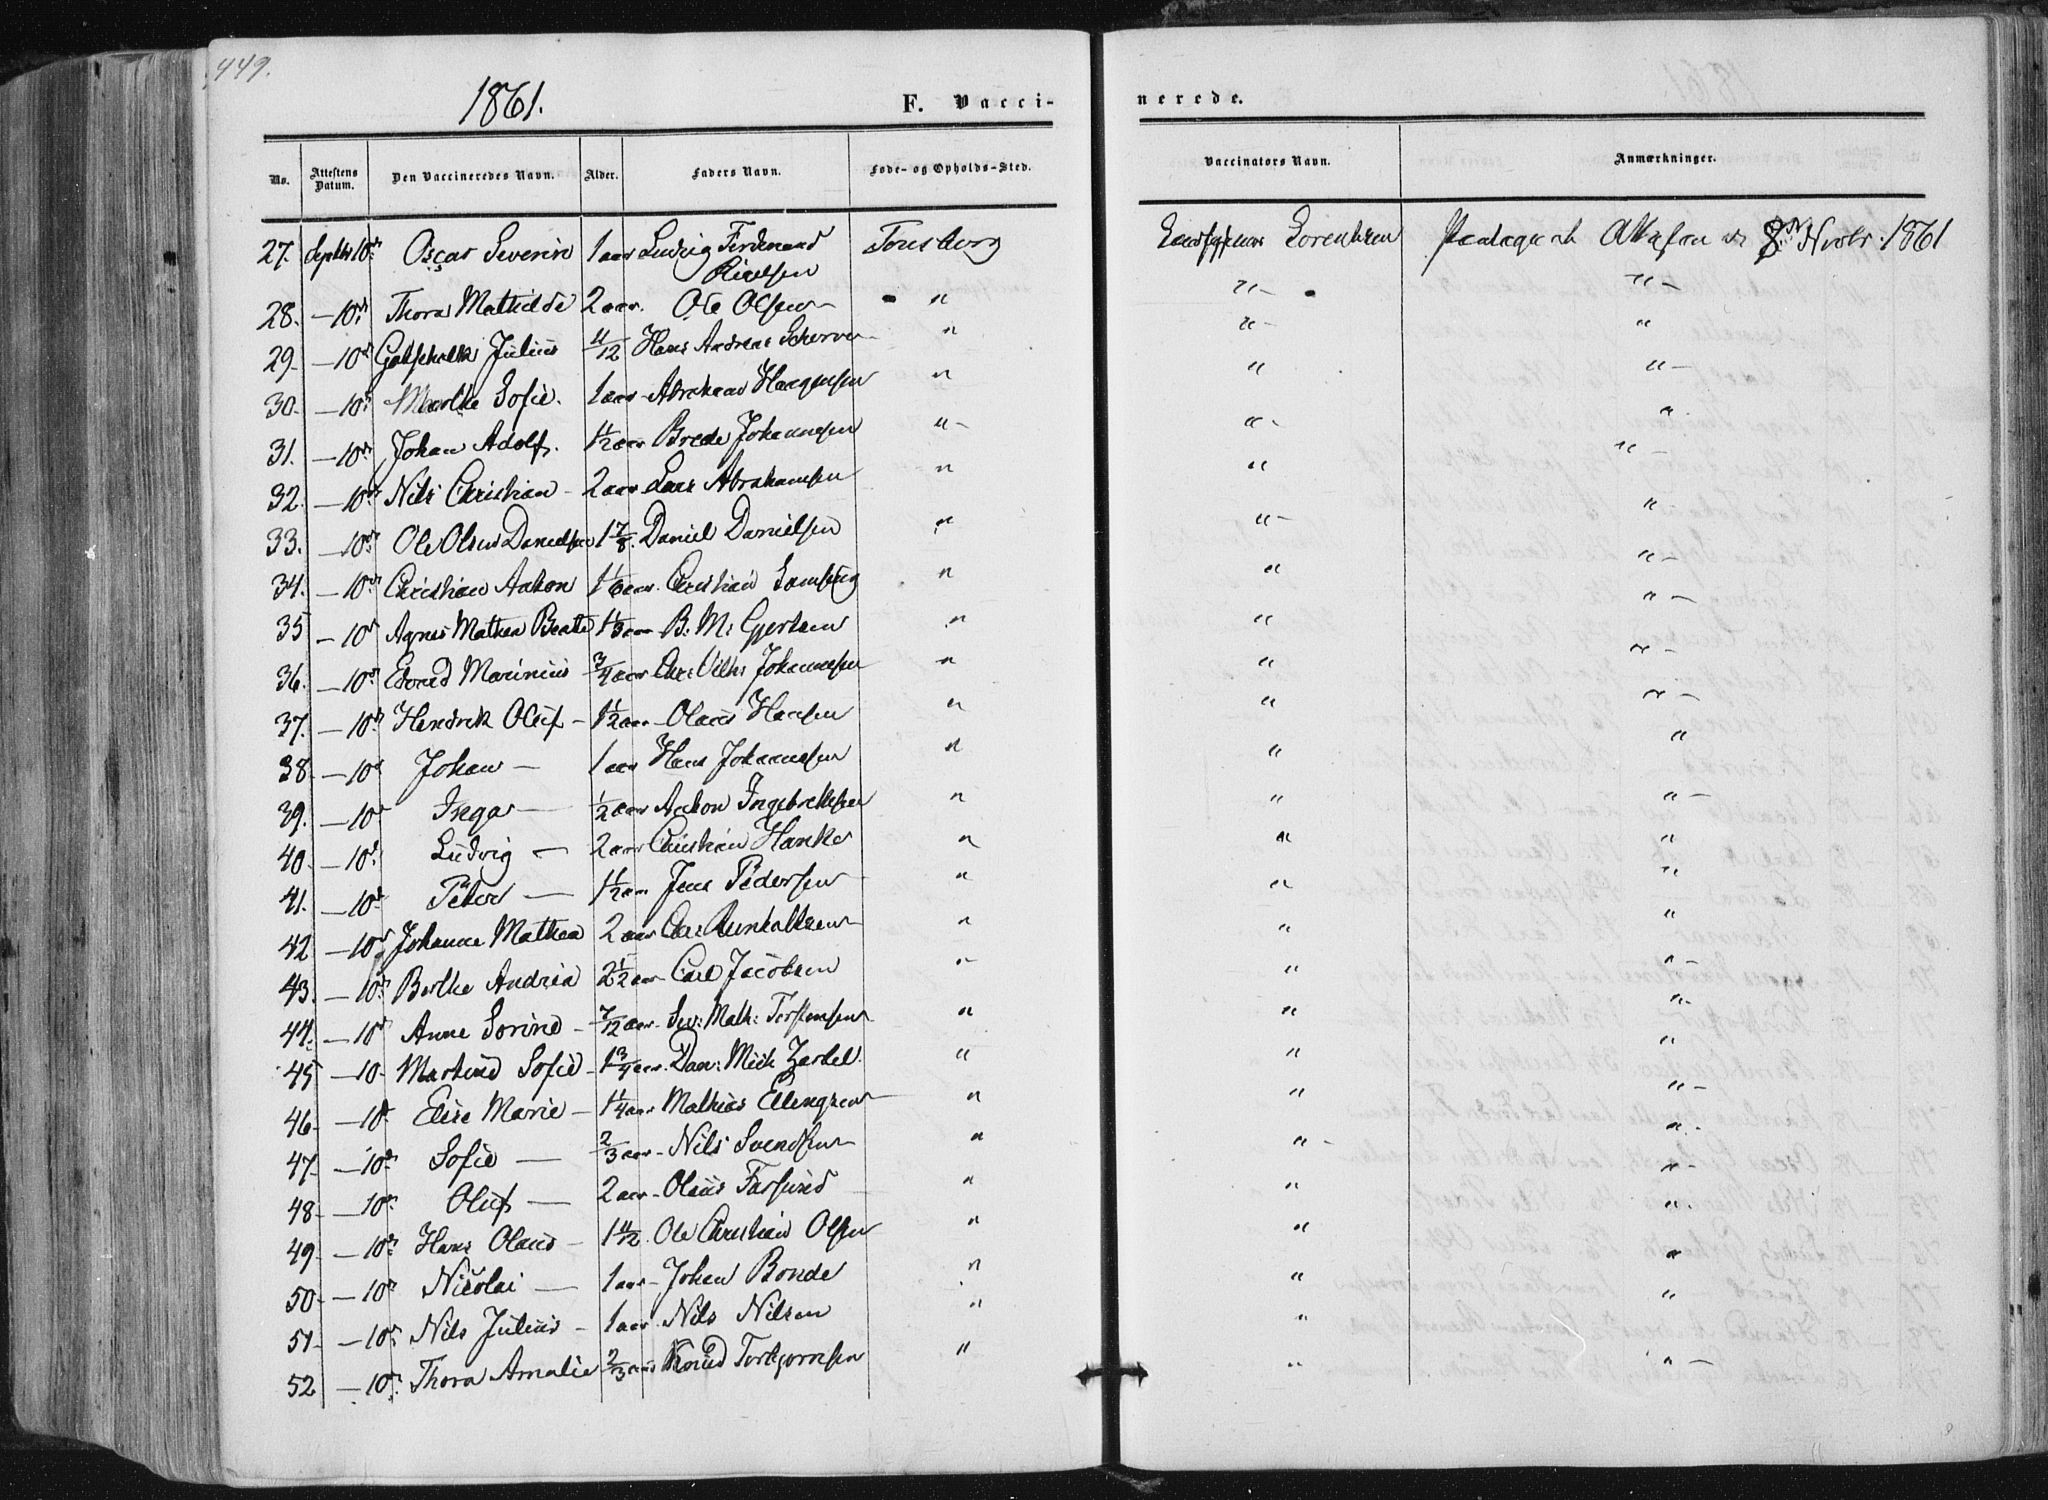 449.
1861.
F. Vacci-
nerede.
No. Attestens Datum. Den Vaccineredes Navn. Alder. Faders Navn. Føde- og Opholds-Sted. Vaccinators Navn. Anmærkninger.
27. Septbr 10de Oscar Severin 1 aar Ludvig Ferdinand Tønsberg Lorentzen 8de Novbr. 1861
28. — 10de Thora Mathilde 2 aar. Ole Olsen — " "- "-
29. — 10de Julius 11/12 Hans Andreas " "- "
30. — 10de Marthe Sofie. 1 aar - Abraham Haagensen " " "-
31. — 10de Johan Adolf. 1 1/2 aar Brede Johannesen "- "- "
32. — 10de Nils Christian - 2 aar Lars Abrahamsen " " "-
33. — 10de Ole Olsen Danielsen 1 7/8. Daniel Danielsen " "- "-
34. — 10de Christian Anton 1 1/6 aar. Christian " " "-
35 — 10de Agnes Mathea Beate 1 1/3 aar B: M: Gjertsen " " "-
36. — 10de Edvard Marinius 3/4 aar Chr: Vilh: Johannesen " " "-
37. — 10de Hendrik Oluf - 1 1/2 aar - Olaus Hansen " " "-
38 — 10de Johan — 1 aar Hans Johannesen " " "
39. — 10de Inga — 1/2 aar Anton Ingebretsen " " "-
40 — 10de Ludvig — 2 aar Christian Hanke " " "
41. — 10de Peter — 1 1/2 aar Jens Pedersen " " "
42 — 10de Johanne Mathea 2 aar Chr: " " "
43. — 10de Berthe Andrea 2 1/2 aar - Carl Jacobsen " " "-
44. — 10de Anne Sorine - 7/12 aar - Sev: Math: Torstensen " " "-
45 — 10 - Martine Sofie - 1 3/4 aar. Dan: Mich " " "
46 — 10de Elise Marie — 1 1/4 aar Mathias Ellengsen " " "-
47 — 10de Sofie — 2/3 aar - Nils Svendsen " "- "-
48 — 10de Oluf — 2 aar - Olaus Farsund " " "-
49 — 10de Hans Olaus - 1 11/12. Ole Christian Olsen " " "
50 — 10de Nicolai — 1 aar - Johan Bonde " " "
51 — 10de Nils Julius - 1 aar. Nils Nilsen " " "
52 — 10de Thora Amalie 2/3 aar Knud Torbjørnsen " " "-